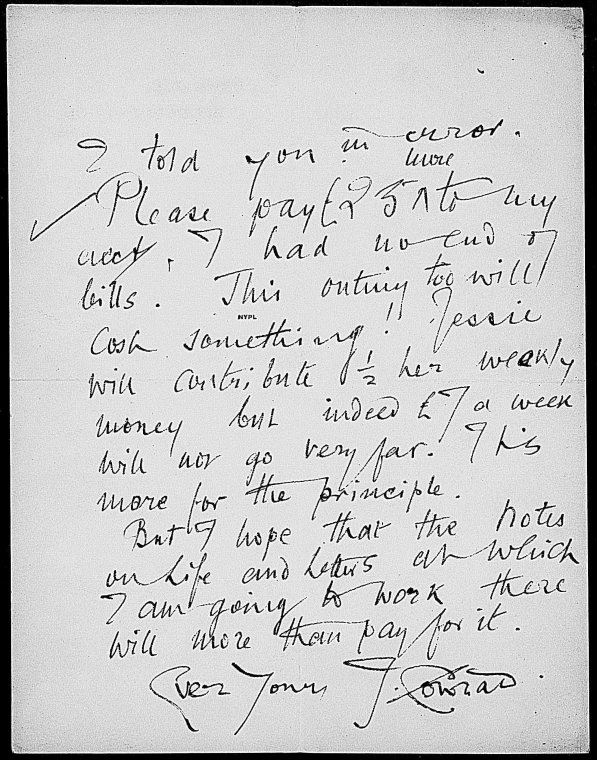 I told you in error.
more
Please pay £25 ^ to my
acct. I had no end of
bills. This outing too will
NYPL
cost something! Jessie
will contribute ½ her weekly
money but indeed £7 a week
will not go very far. It is
more for the principle.
But I hope that the Notes
on Life and Letters at which
I am going to work there
will more than pay for it.
Ever Yours J. Conrad.